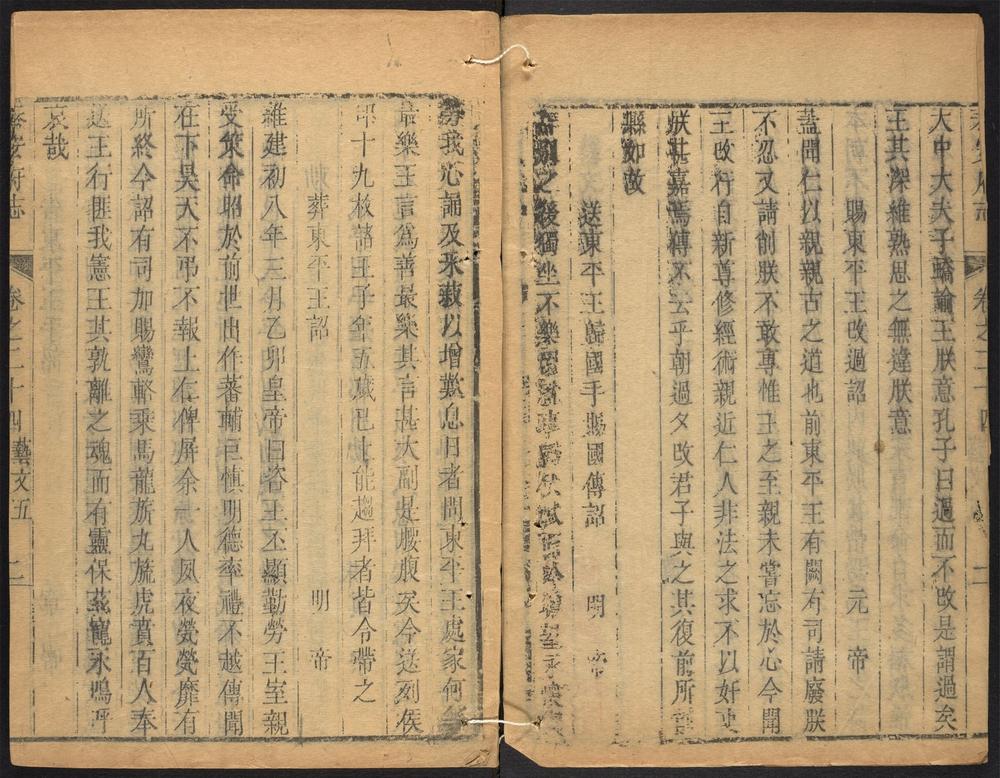 大中大夫子蟜諭王朕意孔子曰過而不改是謂過矣
王其深維熟思之無違朕意
賜東平王改過詔 元帝
蓋聞仁以親親古之道也前東平王有闕有司請廢朕
不忍又請削朕不敢專惟王之至親未嘗忘於心今聞
王改行自新尊修經術親近仁人非法之求不以奸吏
朕甚嘉焉傳不云乎朝過夕改君子與之其復前所
縣如故
送東平王歸國手賜國傳詔 明帝
之後獨坐不樂
我心誦及采菽以增歎息日者問東平王處家何
最樂王言為善最樂其言甚大副是腰腹矣今送列侯
印十九枚諸王子年五歲已上能趨拜者皆令帶之
葬東平王詔 明帝
維建初八年三月乙卯皇帝曰咨王丕顯勤勞王室親
受策命昭於前世出作蕃輔克慎明德率禮不越傅聞
在下昊天不弔不報上仁俾屏余一人夙夜煢煢靡有
所終今詔有司加賜鸞輅乘馬龍旂九旒虎賁百人奉
送王行匪我憲王其孰離之魂而有靈保茲寵永嗚呼
哀哉
府志 卷之二十四藝文五 二